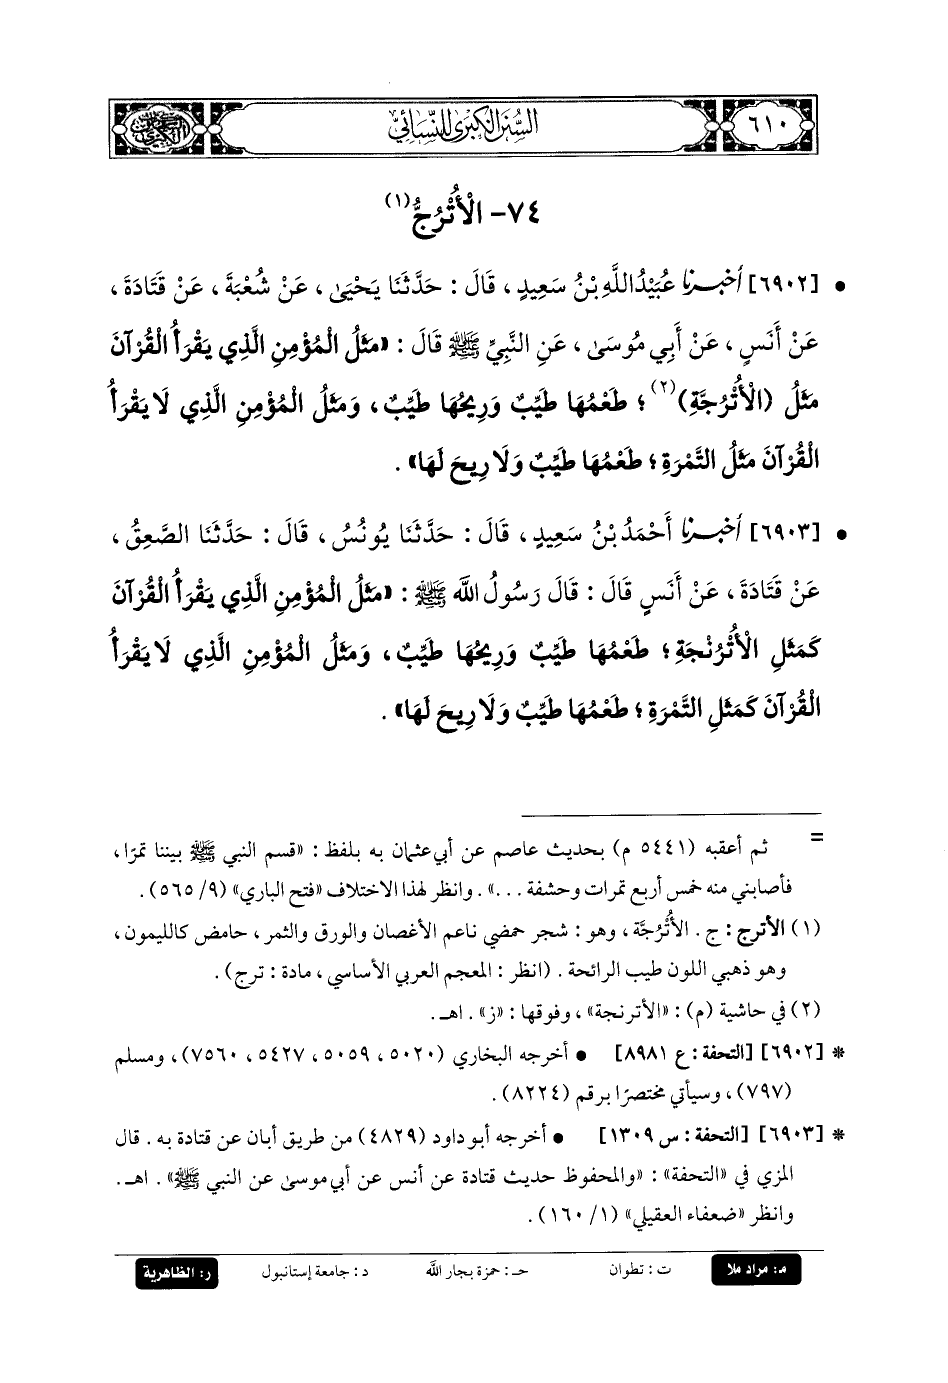 ٦١٠
السُّنَنُ الْكِبْرَى لِلنَّسَائِيِّ
٧٤- الْأُتْرُجُّ(١)
• [٦٩٠٢] أخبرنا عُبَيْدُ اللَّهِ بْنُ سَعِيدٍ ، قَالَ : حَدَّثَنَا يَحْيَى ، عَنْ شُعْبَةَ ، عَنْ قَتَادَةَ ،
عَنْ أَنَسٍ ، عَنْ أَبِي مُوسَى ، عَنِ النَّبِيِّ ﷺ قَالَ : «مَثَلُ الْمُؤْمِنِ الَّذِي يَقْرَأُ الْقُرْآنَ
مَثَلُ (الْأُتْرُجَّةِ)(٢) ؛ طَعْمُهَا طَيِّبٌ وَرِيحُهَا طَيِّبٌ ، وَمَثَلُ الْمُؤْمِنِ الَّذِي لَا يَقْرَأُ
الْقُرْآنَ مَثَلُ التَّمْرَةِ ؛ طَعْمُهَا طَيِّبٌ وَلَا رِيحَ لَهَا» .
• [٦٩٠٣] أخبرنا أَحْمَدُ بْنُ سَعِيدٍ ، قَالَ : حَدَّثَنَا يُونُسُ ، قَالَ : حَدَّثَنَا الصَّعِقُ ،
عَنْ قَتَادَةَ ، عَنْ أَنَسٍ قَالَ : قَالَ رَسُولُ اللَّهِ ﷺ : «مَثَلُ الْمُؤْمِنِ الَّذِي يَقْرَأُ الْقُرْآنَ
كَمَثَلِ الْأُتْرُنْجَةِ ؛ طَعْمُهَا طَيِّبٌ وَرِيحُهَا طَيِّبٌ ، وَمَثَلُ الْمُؤْمِنِ الَّذِي لَا يَقْرَأُ
الْقُرْآنَ كَمَثَلِ التَّمْرَةِ ؛ طَعْمُهَا طَيِّبٌ وَلَا رِيحَ لَهَا» .
= ثم أعقبه (٥٤٤١ م) بحديث عاصم عن أبي عثمان به بلفظ : «قسم النبي ﷺ بيننا تمرًا ،
فأصابني منه خمس أربع تمرات وحشفة ...» . وانظر لهذا الاختلاف «فتح الباري» (٩/ ٥٦٥) .
(١) الأترج : ج . الأُتْرُجَّة ، وهو : شجر حمضي ناعم الأغصان والورق والثمر ، حامض كالليمون ،
وهو ذهبي اللون طيب الرائحة . (انظر : المعجم العربي الأساسي ، مادة : ترج) .
(٢) في حاشية (م) : «الأترنجة» ، وفوقها : «ز» . اهـ .
* [٦٩٠٢] [التحفة : ع ٨٩٨١] • أخرجه البخاري (٥٠٢٠ ، ٥٠٥٩ ، ٥٤٢٧ ، ٧٥٦٠) ، ومسلم
(٧٩٧) ، وسيأتي مختصرًا برقم (٨٢٢٤) .
* [٦٩٠٣] [التحفة : س ١٣٠٩] • أخرجه أبو داود (٤٨٢٩) من طريق أبان عن قتادة به . قال
المزي في «التحفة» : «والمحفوظ حديث قتادة عن أنس عن أبي موسى عن النبي ﷺ» . اهـ .
وانظر «ضعفاء العقيلي» (١/ ١٦٠) .
م: مراد ملا ت : تطوان حـ : حمزة بجار الله د : جامعة إستانبول ر: الظاهرية